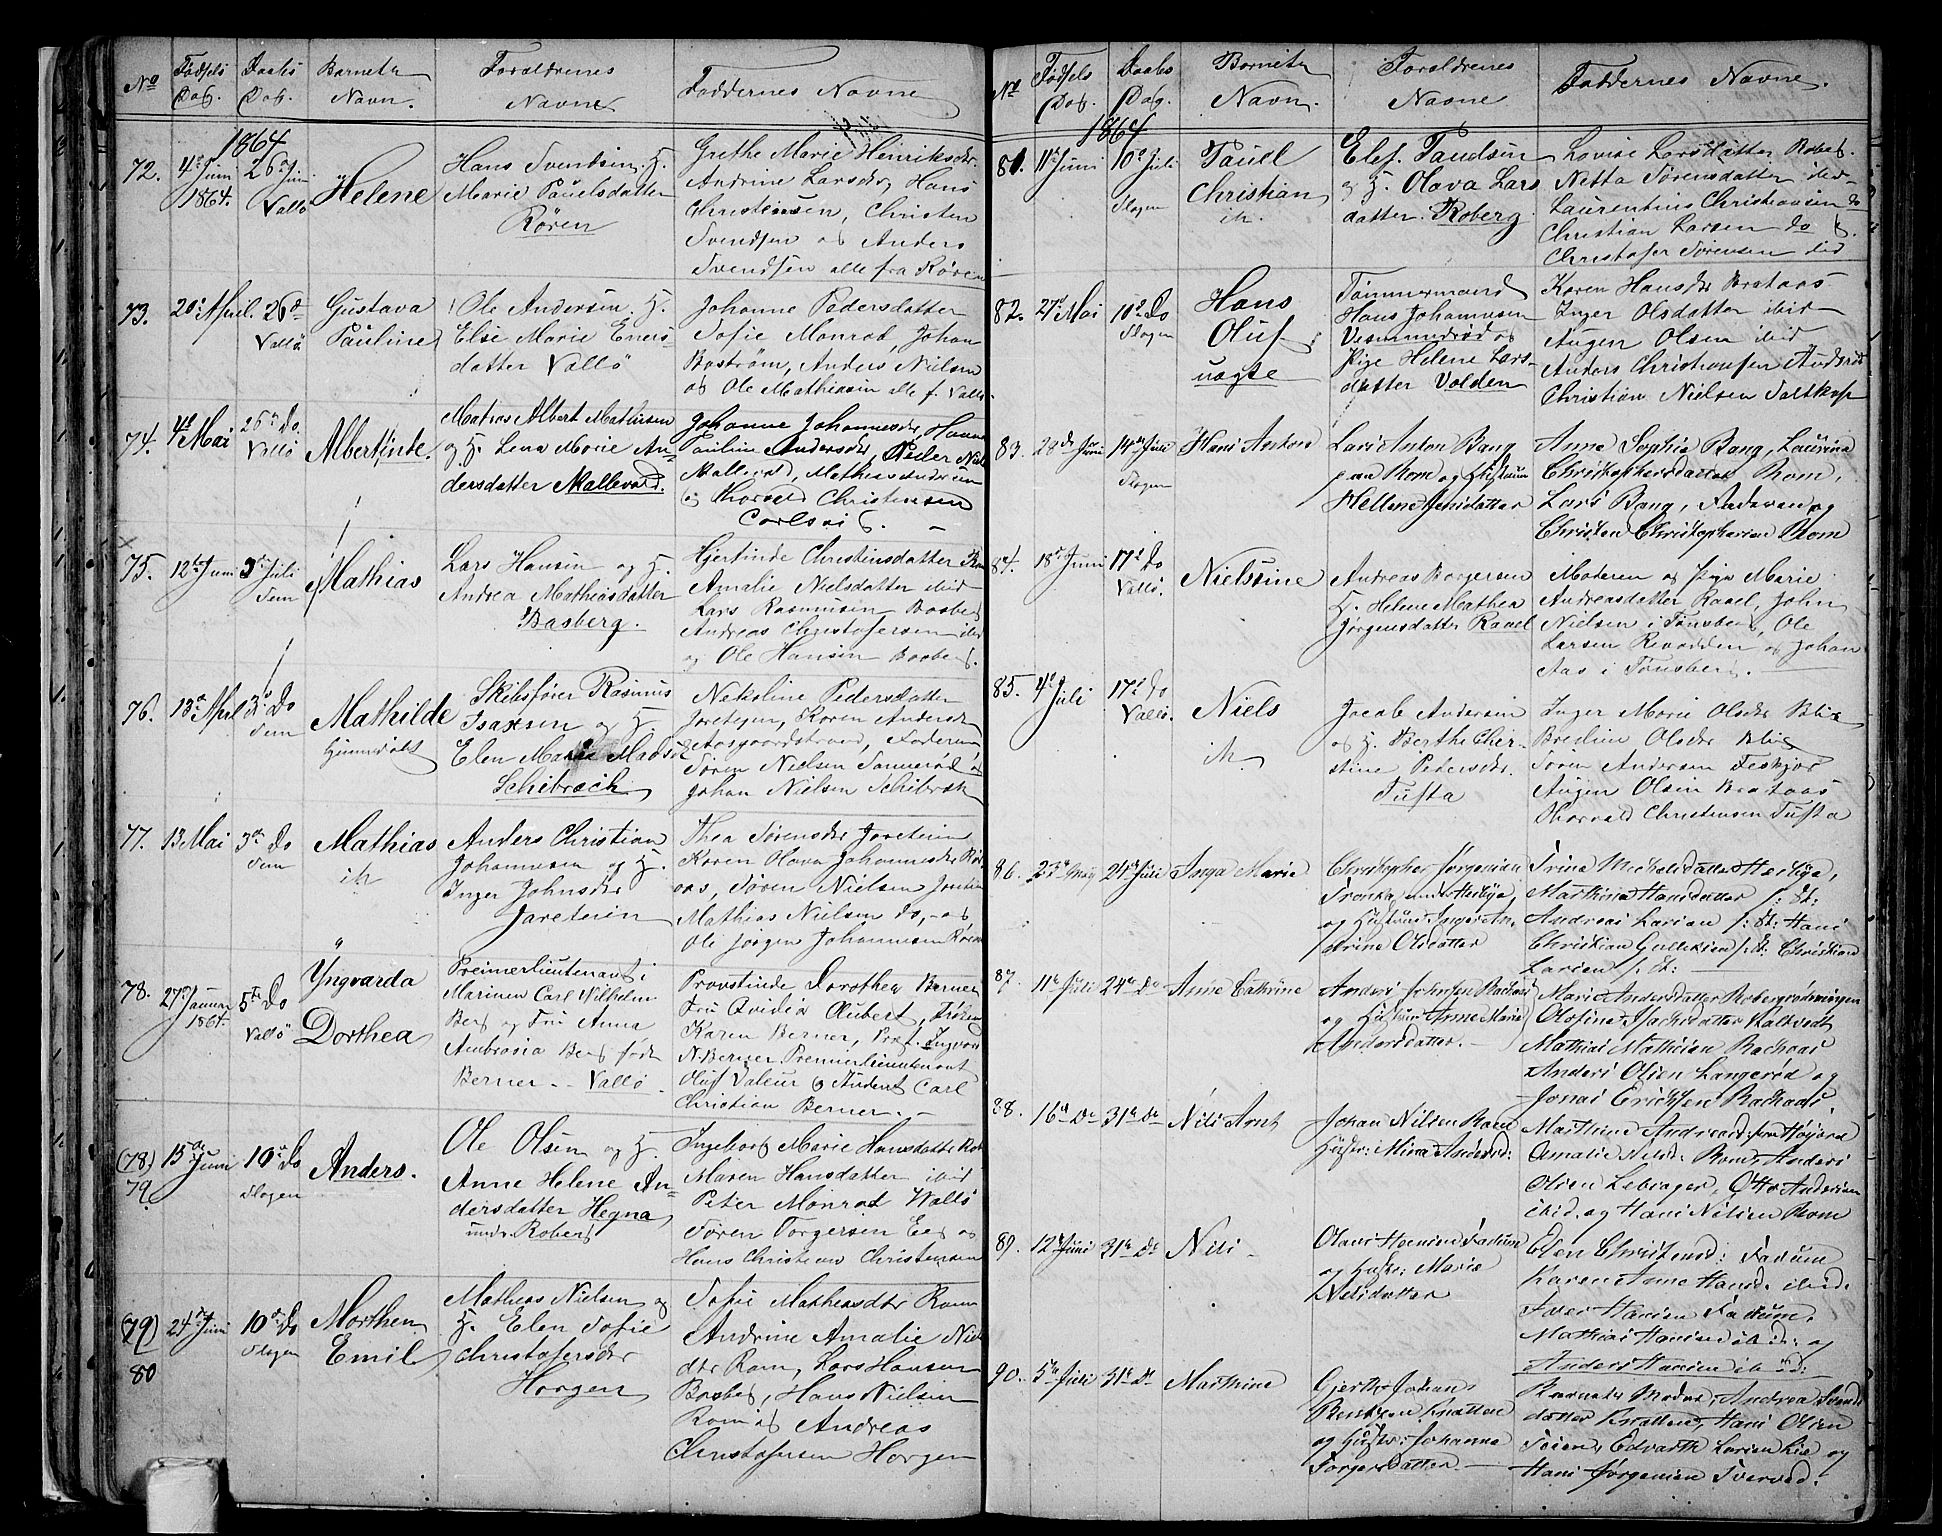 No
Fødsels Dag.
Daabs Dag.
Barnets Navn.
Foraldrenes Navne
Faddernes Navne
1864
72.
4de Juni 1864.
26de Juni Vallö
Helene
Hans Svendsen H.
Marie Pauelsdatter
Røren
Grethe Marie Henriksdr
Andrine Larsdr, Hans
Christensen, Christen
Svendsen og Anders
Svendsen alle fra Røren
73.
20de April.
26de Vallö
Gustava
Pauline
Ole Andersen. H.
Else Marie Eners
datter Vallö
Johanne Pedersdatter
Sofie Monrad, Johan
Boström, Anders Nielsen
og Ole Mathiesen alle f. Vallö
74.
4de Mai
26de Do. Vallö
Albertine.
Matros Albert Mathisen
og H. Lena Marie An-
dersdatter Mallevold.
Johanne Johannesdr
Pauline Andersdr, Peder
Mallevold, Mathias Andersen
og Thorvald Christensen
75.
12te Juni
3de Juli Sem
Mathias
Lars Hansen og H.
Andrea Mathiasdatter
Basberg.
Hjertinde Christinsdatter
Amalie Nielsdatter ibid
Lars Rasmusen Basberg
Andreas Christofersen ibid
og Ole Hansen Basberg.
76.
13de April
3de Do Sem
Mathilde
hjemmedøbt
Skibsfører Rasmus
Isaksen og H.
Elen Marie Mads
Schibrach
Pedersdatter
Jareteien, Karen Andersdr
Aasgaardstrand, Faderen
Søren Nielsen og
Johan Nielsen Schibrak
77.
13 Mai
3de Do Sem
Mathias
Anders Christian
Johannesen og H.
Inger Johnsdr
Jareteien
Thea Sørensdr Jareteien
Karen Olava Johannesdr
Søren Nielsen
Mathias Nielsen do, og
Ole Jørgen Johannesen Røren
78.
27de Januar 1864.
5te Do Vallö
Yngvarda
Dorthea
Premierlieutenant i
Marinen Carl Wilhelm
Berg og Fru Anna
Ambrosia Berg født
Berner - Vallö
Provstinde Dorothea Berner
Fru Ovidia Aubert, Frøken
Karen Berner, Prof. Ingvar
N. Berner. Premierlieutenant
Oluf Valeur og Student Carl
Christian Berner.
(78)
79
15de Juni
10de Do Slagen
Anders.
Ole Olsen og H.
Anne Helene An-
dersdatter Hegna
under Roberg
Ingeborg Marie Hansdatter
Maren Hansdatter ibid
Peter Monrad Vallö
Søren Torgersen Ee og
Hans Christian Christensen
(79)
80
24de Juni
10de Do Slagen
Morthen
Emil
Mathias Nielsen og
H. Elen Sofie
Christofersdr
Horgen
Sofie Mathiasdtr Rom
Andrine Amalie Niels
dtr Rom, Lars Hansen
Basberg, Hans Nielsen
Rom og Andreas
Christofersen Horgen
No
Fødsels Dag.
Daabs Dag.
Barnets Navn.
Foraldrenes Navne
Faddernes Navne.
1864
81.
11te Juni
10de Juli Slagen
Pauel
Christian
Elef. Paulsen
og H. Olava Lars
datter. Roberg
Lovise Larsdatter Roberg.
Netta Sørensdatter ibid
Laurentius Christiansen do
Christian Larsen do &
Christofer Sørensen ibid
82.
27de Mai
10de Do Slagen
Hans
Oluf
uægte
Tømmermand
Hans Johannesen
og
Pige Helene Lars-
datter Volden
Karen Hansdr Brataas
Inger Olsdatter ibid
Augen Olsen ibid
Anders Christiansen
Christian Nielsen Saltkop
83.
28de Juni
14de Juli Slagen
Hans Anton
Lars Anton Bang
paa Rom og Hustrue
Hellene Jensdatter
Anne Sophie Bang, Laurina
Christophersdatter Rom,
Lars Bang, Faderen og
Christen Christophersen Rom
84.
18de Juni
17de Do Vallö.
Nielsine
Andreas Borgersen
H. Helene Mathea
Jørgensdatter Ravel
Moderen og Pige Marie
Andreasdatter Ravel, John
Nielsen i Tønsberg, Ole
Larsen og Johan
Aas i Tønsberg.
85.
4de Juli
17de Do Vallö.
Niels
Jacob Andersen
og H. Berthe Chir-
stine Pedersdr.
Tufta
Inger Marie Olsdr Blix
Bredine Olsdr Blix
Søren Andersen
Augen Olsen Brataas
Thorvald Christensen Tufta
86.
23de Maj
24de Juli
Inga Marie
Christopher Jørgensen
under Heskja,
og Hustrue Inger An-
drine Olsdatter
Trine Michelsdatter Herskja,
Marthine Hansdatter
Andreas Larsen Hans
Christian Gulleksen Christian
Larsen
87.
11te Juli
24de Do
Anne Cathrine
Anders Johnsen Rachaas
og Hustrue Anne Marie
Andersdatter.
Marie Andersdatter
Olofine Isachsdatter
Mathias Mathisen Rachaas
Anders Olsen Langerød og
Jonas Erichsen Rachaas.
88.
16de Do
31te Do
Nils Arnt
Johan Nilsen Ravn
Hustr: Mina Andersd:
Marthine Andreasd:
Amalie Nilsd: Rom, Anders
Olsen, Otto Andersen
ibid. og Hans Nilsen Rom
89.
12te Juni
31te Do
Nils
Olaus Hansen Fadum
og Hustr: Marie
Nilsdatter
Elen Christensd: Fadum
Karen Anne Hansd. ibid.
Iver Hansen Fadum,
Mathias Hansen ibid: og
Anders Hansen ibid:
90.
5te Juli
31te Do
Marthine
Gjert Johan
Bentsen Knatten
og Hustr: Johanne
Torgersdatter
Barnets Moder, Andrea
datter Knatten, Hans Olsen
Edvarth Larsen Lie og
Hans Jørgensen Tverved.